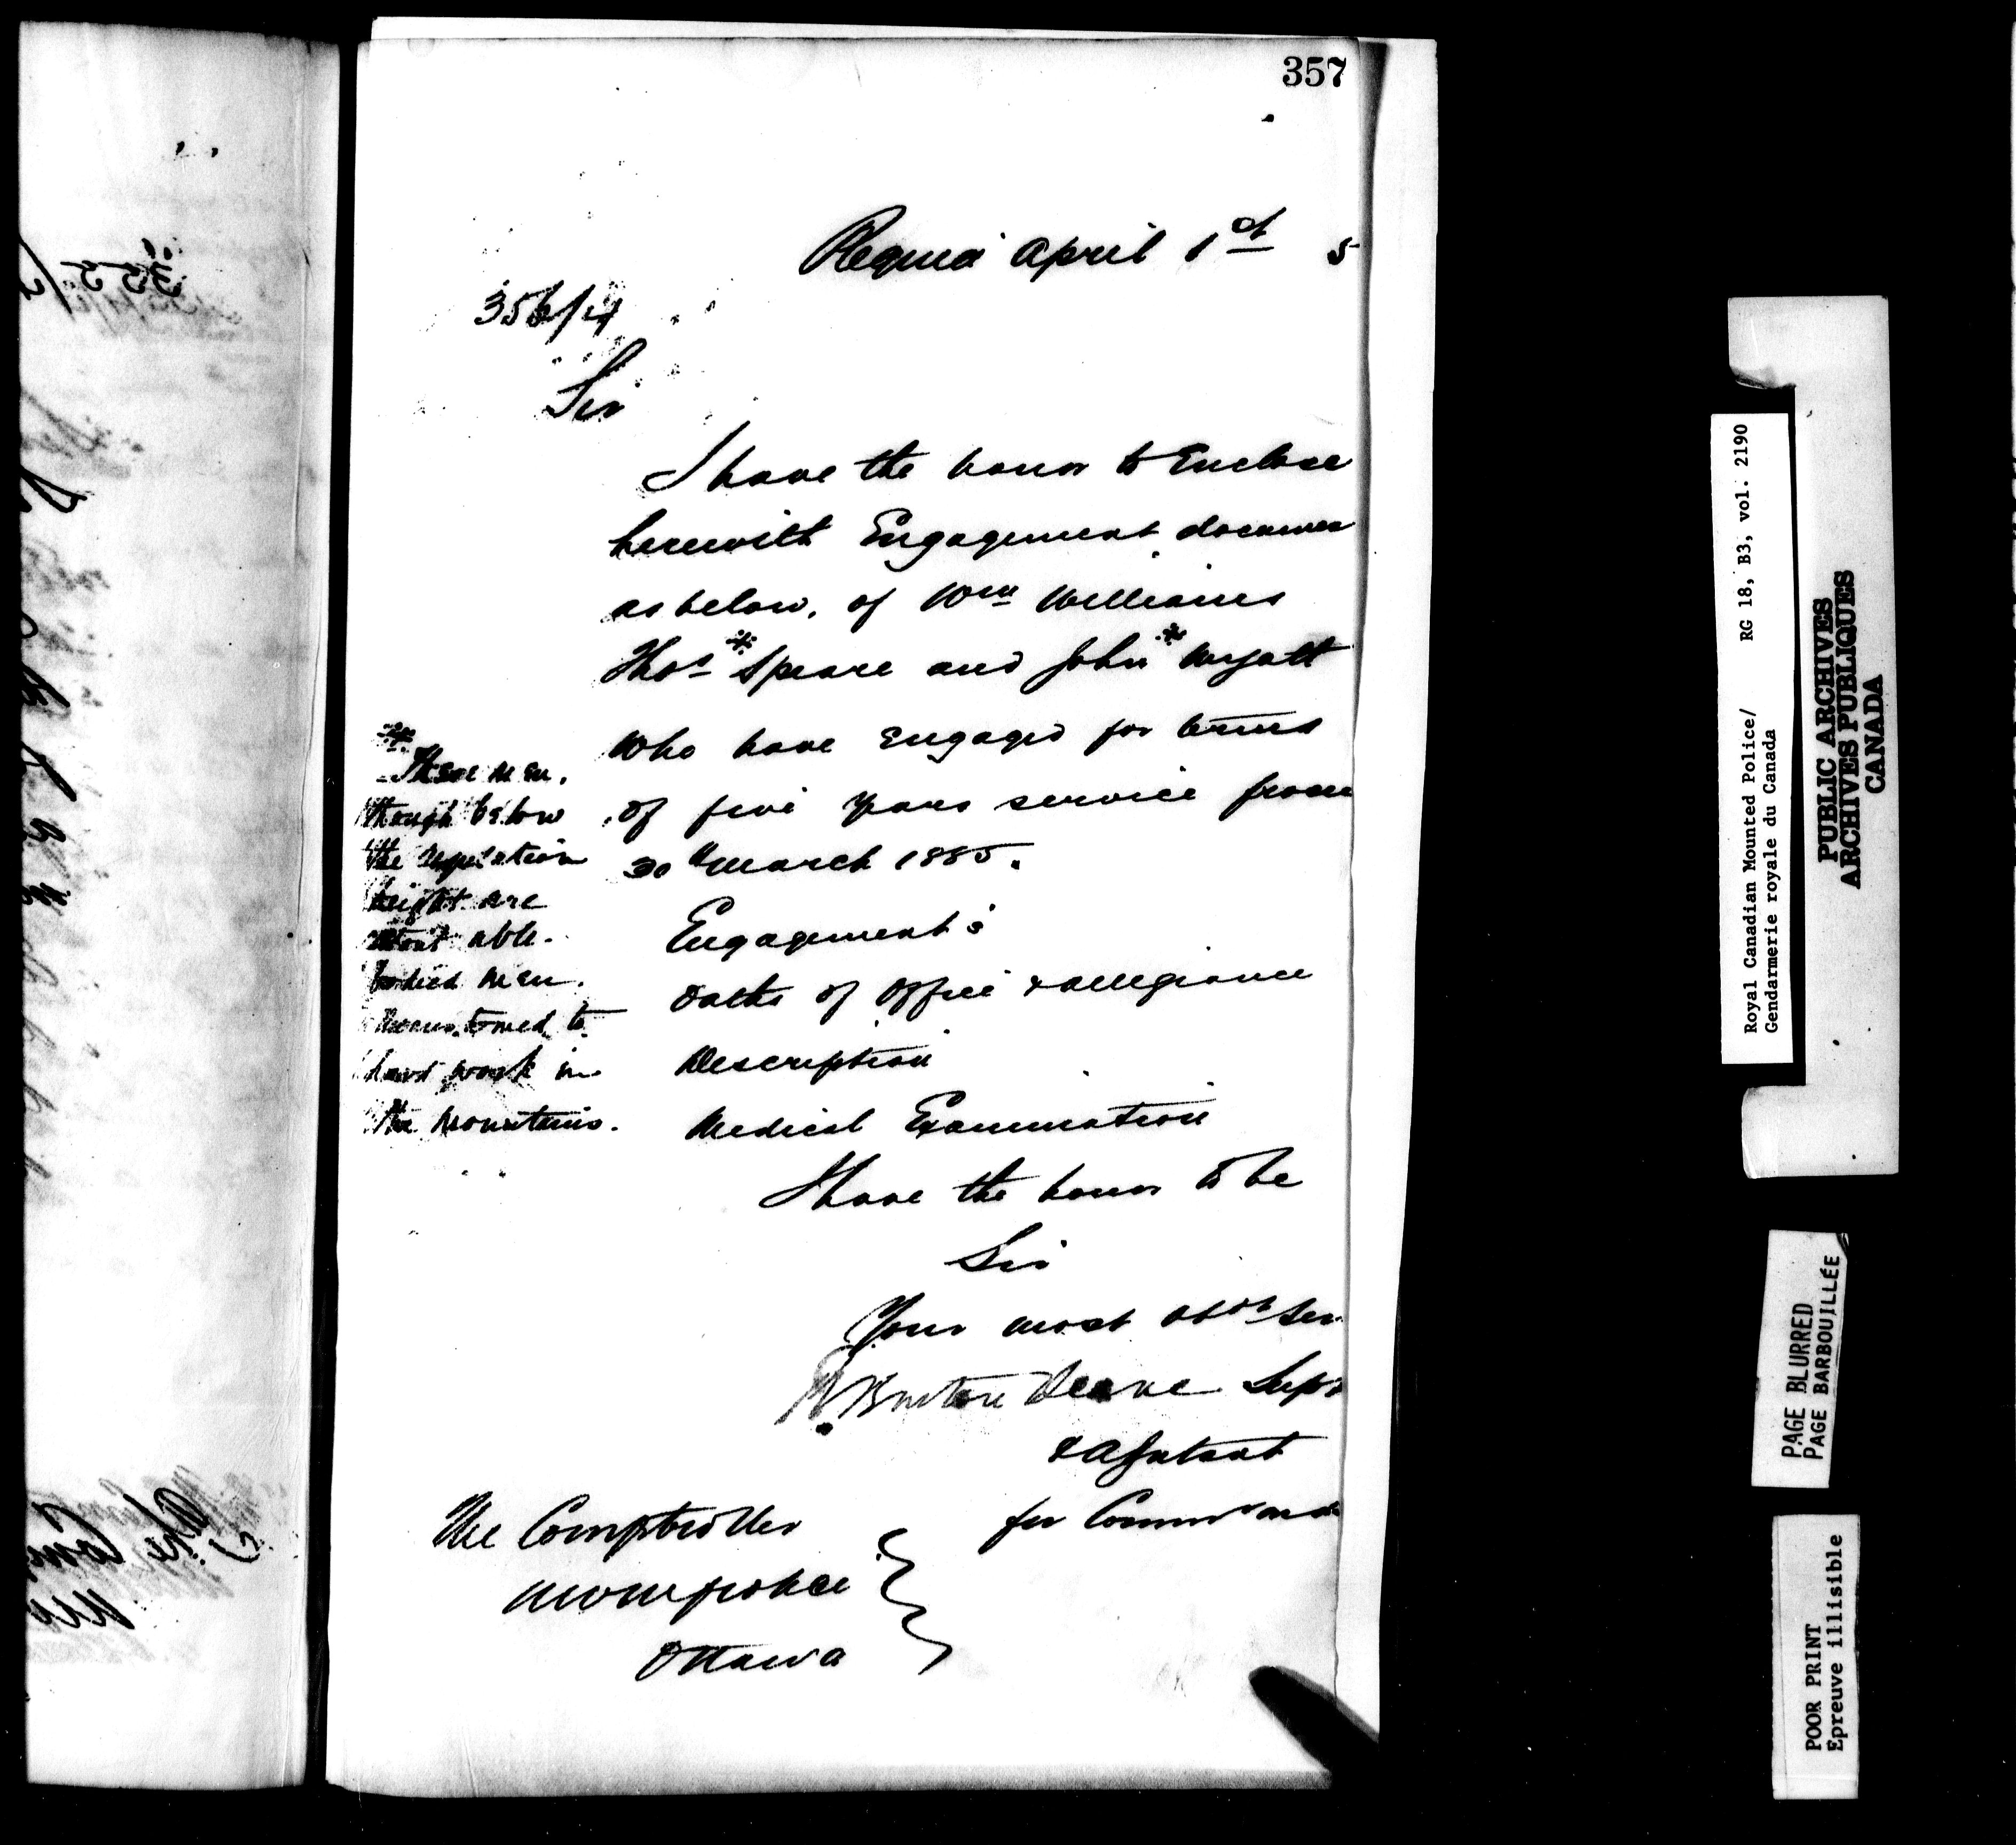 357
Regina April 1st 5
356/4
Sir
I have the honor to Enclose
herewith Engagement documen
as below, of Wm Williams
Thos * Speare and John * Wyatt
who have Engaged for terms
of five years service from
30th March 1885.
* These men,
though below
the regulation
height are
stout able-
bodied men.
accustomed to
hard work in
the mountains.
Engagement's
Oaths of Office & allegiance
Description
Medical Examination
I have the honor to be
Sir
Your most obdt Ser
R. Burton Deane Supt
& Adjutant
for Comm
The Comptroller
NWM police
Ottawa
Royal Canadian Mounted Police/ RG 18, B3, vol. 2190
Gendarmerie royale du Canada
PUBLIC ARCHIVES
ARCHIVES PUBLIQUES
CANADA
PAGE BLURRED
PAGE BARBOUILLÉE
POOR PRINT
Epreuve illisible